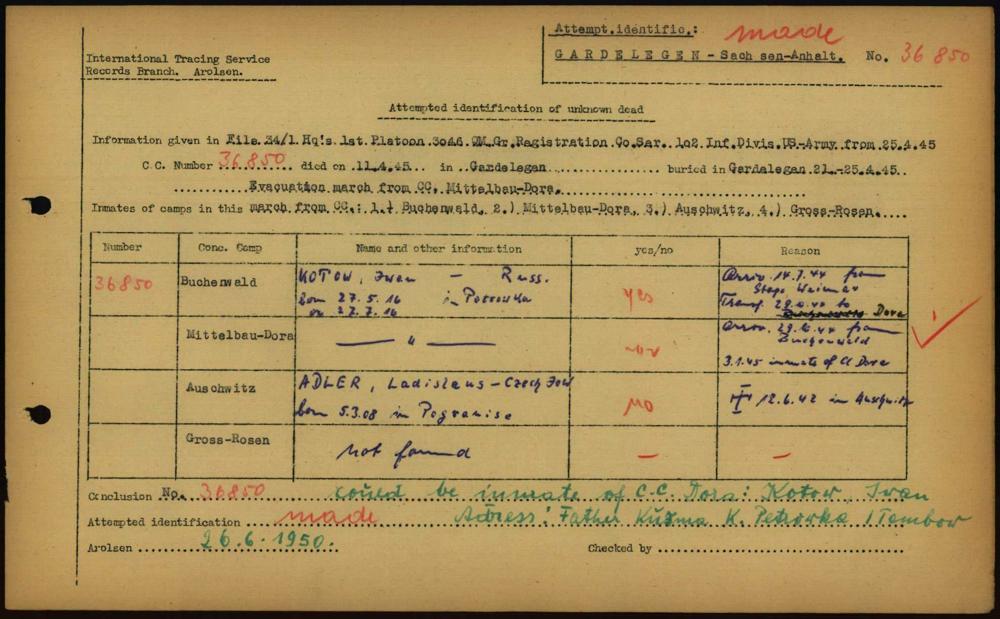 Attempt.identific.: made
International Tracing Service
Records Branch. Arolsen.
GARDELEGEN - Sach sen-Anhalt. No. 36 850
Attempted identification of unknown dead
Information given in File 34/1 Hq's 1st Platoon 3046 QM Gr.Registration Co.Sar. 102 Inf.Divis.US-Army from 25.4.45
C.C. Number 36850 died on 11.4.45 in Gardelegen buried in Gardelegen 21.-25.4.45
Evacuation march from CC. Mittelbau-Dora.
Inmates of camps in this march from CC.: 1.) Buchenwald, 2.) Mittelbau-Dora, 3.) Auschwitz, 4.) Gross-Rosen.
Number Conc. Comp Name and other information yes/no Reason
36850 Buchenwald KOTOW, Iwan - Russ.
born 27.5.16 in Petrowka
or 27.7.16
yes
Arriv. 14.7.44 from
Stapo Weimar
Transf. 29.6.44 to
Dora
Mittelbau-Dora — " —
Arriv. 29.6.44 from
Buchenwald
3.1.45 inmate of CC Dora
Auschwitz ADLER, Ladislaus - Czech Jew
born 5.3.08 in
no
12.6.42 in Auschwitz
Gross-Rosen not found — —
Conclusion No. 36850 could be inmate of C.C. Dora: Kotow Iwan
Attempted identification made Adress: Father Kusma K. Petrowka / Tambow
Arolsen 26.6.1950. Checked by